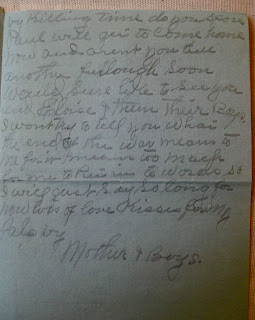 by killing time do you spose
Paul will get to come home
now and arent you due
another furlough soon
Would sure like to see you
and Eloise & their Boy.
I wont try to tell you what
the end of the war means to
me for it means too much
for me to in to words so
I will just Say So long for
now lots of love Kisses from
Pals by
Mother & Boys.